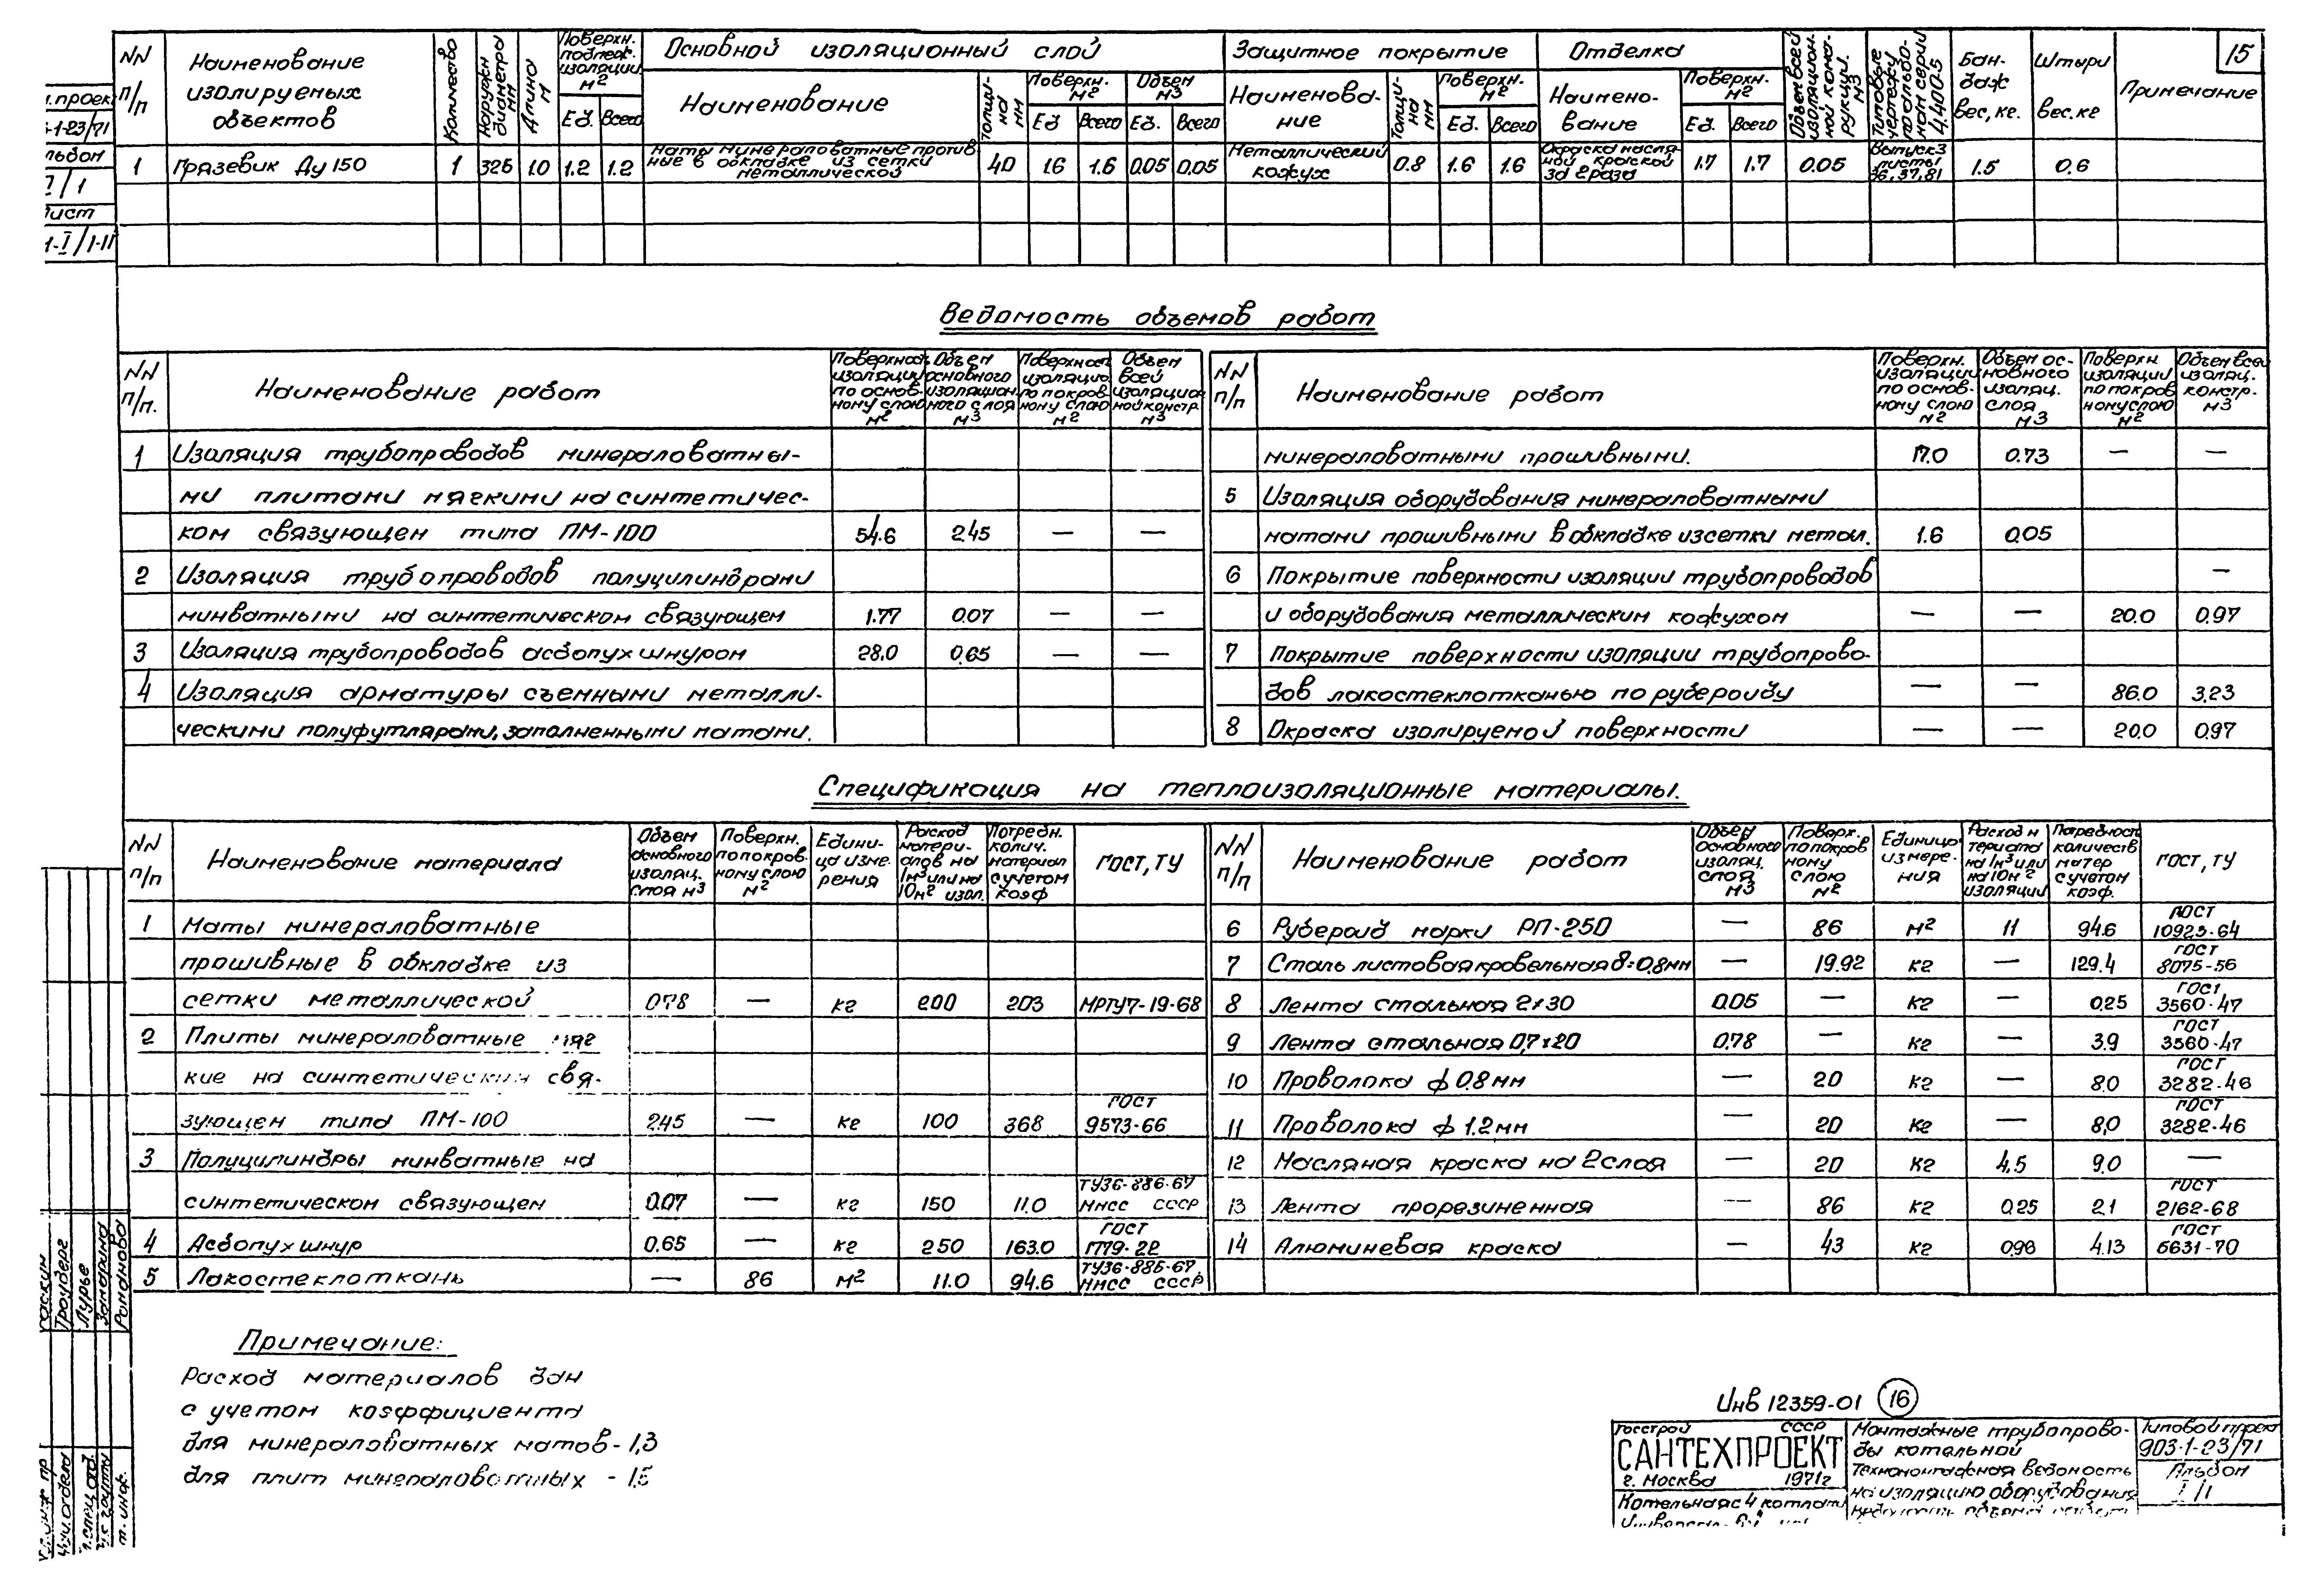 15
NN п/п | Наименование изолируемых объектов | Количество | Наружн диаметры мм | Длина м | Поверхн. подлеж. изоляции м2 | Основной изоляционный слой | Защитное покрытие | Отделка | Объем всей изоляцион- ной конст- рукции. м3 | Типовые чертежи по альбо- мам серии 4.400-5 | Бан- даж вес, кг. | Штыри вес. кг | Примечание
Ед. | Всего | Наименование | Толщи- на мм | Поверхн. м2 | Объем м3 | Наименова- ние | Толщи- на мм | Поверхн. м2 | Наимено- вание | Поверхн. м2
Ед | Всего | Ед. | Всего | Ед. | Всего | Ед. | Всего
1 | Грязевик Ду 150 | 1 | 325 | 1.0 | 1.2 | 1.2 | Маты минераловатные прошив ные в обкладке из сетки металлической | 40 | 1.6 | 1.6 | 0.05 | 0.05 | Металлический кожух | 0.8 | 1.6 | 1.6 | Окраска масля ной краской за 2 раза | 1.7 | 1.7 | 0.05 | Выпуск 3 листы 36, 37, 81 | 1.5 | 0.6
Ведомость объемов работ
NN п/п. | Наименование работ | Поверхност изоляции по основ- ному слою м2 | Объем основного изоляцион. ного слоя м3 | Поверхност изоляцио. по покров ному слою м2 | Объем всей изоляцио ной констр. м3
1 | Изоляция трубопроводов минераловатны-
ми плитами мягкими на синтетичес-
ком связующем типа ПМ-100 | 54.6 | 2.45 | — | —
2 | Изоляция трубопроводов полуцилиндрами
минватными на синтетическом связующем | 1.77 | 0.07 | — | —
3 | Изоляция трубопроводов асбопухшнуром | 28.0 | 0.65 | — | —
4 | Изоляция арматуры съемными металли-
ческими полуфутлярами, заполненными матами.
NN п/п | Наименование работ | Поверхн. изоляции по основ- ному слою м2 | Объем ос- новного изоляц. слоя м3 | Поверхн изоляции по покров ному слою м2 | Объем всей изоляц. констр. м3
минераловатными прошивными. | 17.0 | 0.73 | — | —
5 | Изоляция оборудования минераловатными
матами прошивными в обкладке из сетки метал. | 1.6 | 0.05
6 | Покрытие поверхности изоляции трубопроводов | —
и оборудования металлическим кожухом | — | — | 20.0 | 0.97
7 | Покрытие поверхности изоляции трубопрово-
дов лакостеклотканью по рубероиду | — | — | 86.0 | 3.23
8 | Окраска изолируемой поверхности | — | — | 20.0 | 0.97
Спецификация на теплоизоляционные материалы.
NN п/п | Наименование материала | Объем основного изоляц. слоя м3 | Поверхн. по покров. ному слою м2 | Едини- ца изме- рения | Расход матери- алов на 1м3 или на 10м2 изол. | Потребн. колич. материал с учетом коэф | ГОСТ, ТУ
1 | Маты минераловатные
прошивные в обкладке из
сетки металлической | 0.78 | — | кг | 200 | 203 | МРТУ7-19-68
2 | Плиты минераловатные мяг
кие на синтетическим свя-
зующем типа ПМ-100 | 2.45 | — | кг | 100 | 368 | ГОСТ 9573-66
3 | Полуцилиндры минватные на
синтетическом связующем | 0.07 | — | кг | 150 | 11.0 | ТУ36-886-67 ММСС СССР
4 | Асбопухшнур | 0.65 | — | кг | 250 | 163.0 | ГОСТ 1779-22
5 | Лакостеклоткань | — | 86 | м2 | 11.0 | 94.6 | ТУ36-885-67 ММСС СССР
NN п/п | Наименование работ | Объем основного изоляц. слоя м3 | Поверх. по покров ному слою м2 | Единица измере- ния | Расход м териала на 1м3 или на 10м2 изоляции | Потребност количеств матер с учетом коэф. | ГОСТ, ТУ
6 | Рубероид марки РП-250 | — | 86 | м2 | 11 | 94.6 | ГОСТ 10923-64
7 | Сталь листовая кровельная δ=0,8мм | — | 19.92 | кг | — | 129.4 | ГОСТ 8075-56
8 | Лента стальная 2×30 | 0.05 | — | кг | — | 0.25 | ГОСТ 3560-47
9 | Лента стальная 0,7×20 | 0.78 | — | кг | — | 3.9 | ГОСТ 3560-47
10 | Проволока ф 0.8 мм | — | 20 | кг | — | 8.0 | ГОСТ 3282-46
11 | Проволока ф 1.2 мм | — | 20 | кг | — | 8,0 | ГОСТ 3282-46
12 | Масляная краска на 2 слоя | — | 20 | кг | 4.5 | 9.0 | —
13 | Лента прорезиненная | — | 86 | кг | 0.25 | 2.1 | ГОСТ 2162-68
14 | Алюминевая краска | — | 43 | кг | 0.96 | 4.13 | ГОСТ 5631-70
Примечание:
Расход материалов дан
с учетом коэффициента
для минераловатных матов - 1,3
для плит минераловатных - 1,5
Инв 12359-01 16
Госстрой СССР
САНТЕХПРОЕКТ
г. Москва 1971г
Котельная с 4 котлам
Монтажные трубопрово-
ды котельной
Техномонтажная ведомость
на изоляцию оборудования
Типовой проект
903-1-23/71
Альбом
I/1
Лурье
Замарина
Романова